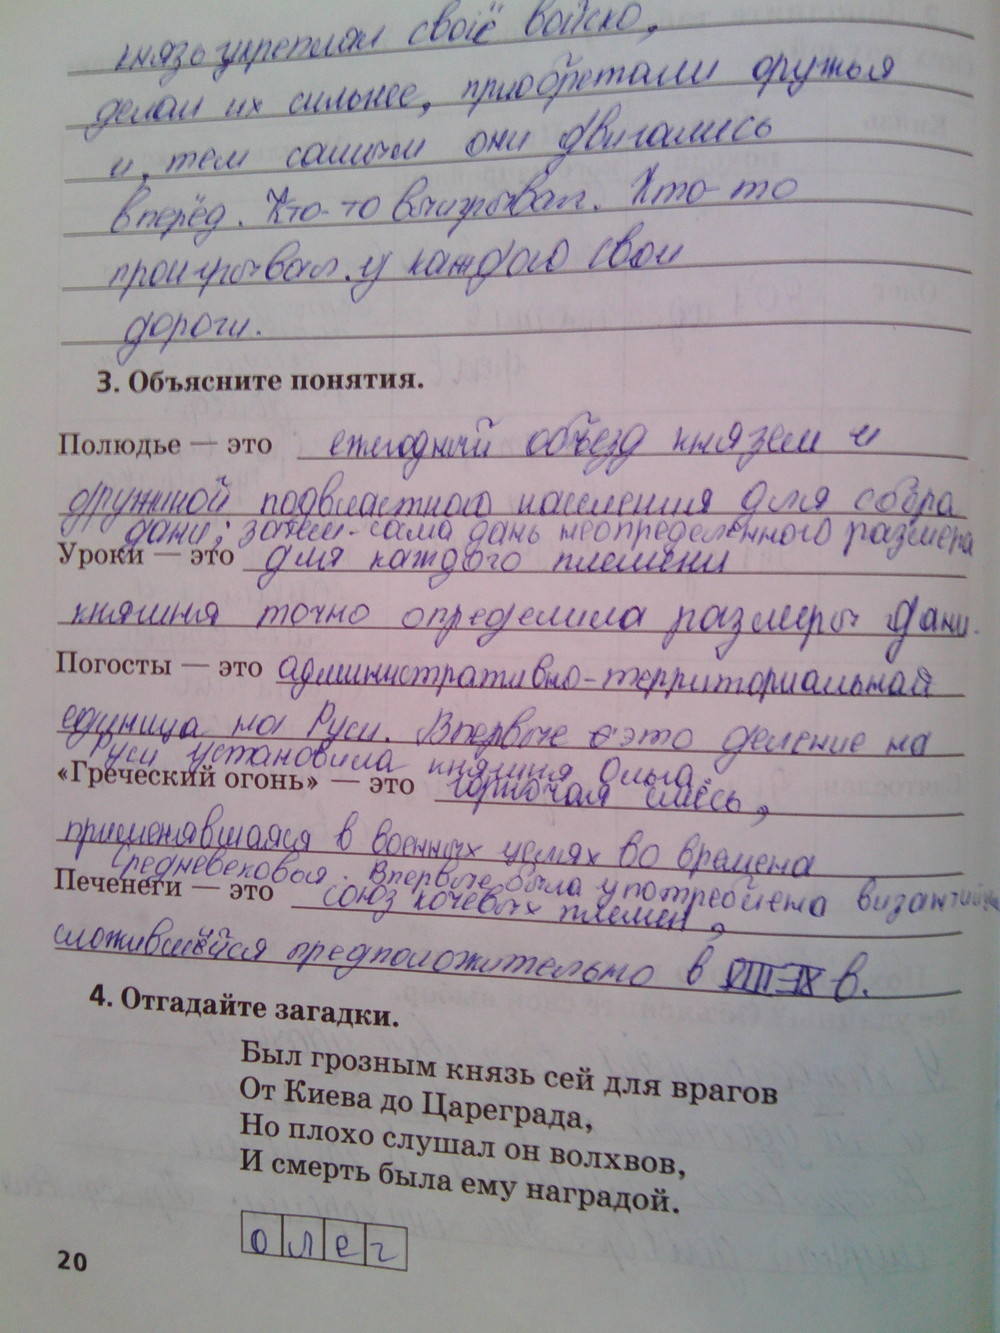 князь укреплял своё войско,
делал их сильнее, приобретали оружья
и, тем самым они двигались
вперёд. Кто-то выигрывал. Кто-то
проигрывал. у каждого свои
дороги.
3. Объясните понятия.
Полюдье — это ежегодный объезд князем и
дружиной подвластного населения для сбора
дани; затем-сама дань неопределенного размера
Уроки — это для каждого племени
княгиня точно определила размеры дани.
Погосты — это административно-территориальная
единица на Руси. Впервые это деление на
Руси установила княгиня Ольга.
«Греческий огонь» — это горючая смесь,
применявшаяся в военных целях во времена
Средневековья. Впервые была употреблена
Печенеги — это союз кочевых племен,
сложившийся предположительно в VIII-IX в.
4. Отгадайте загадки.
Был грозным князь сей для врагов
От Киева до Цареграда,
Но плохо слушал он волхвов,
И смерть была ему наградой.
олег
20